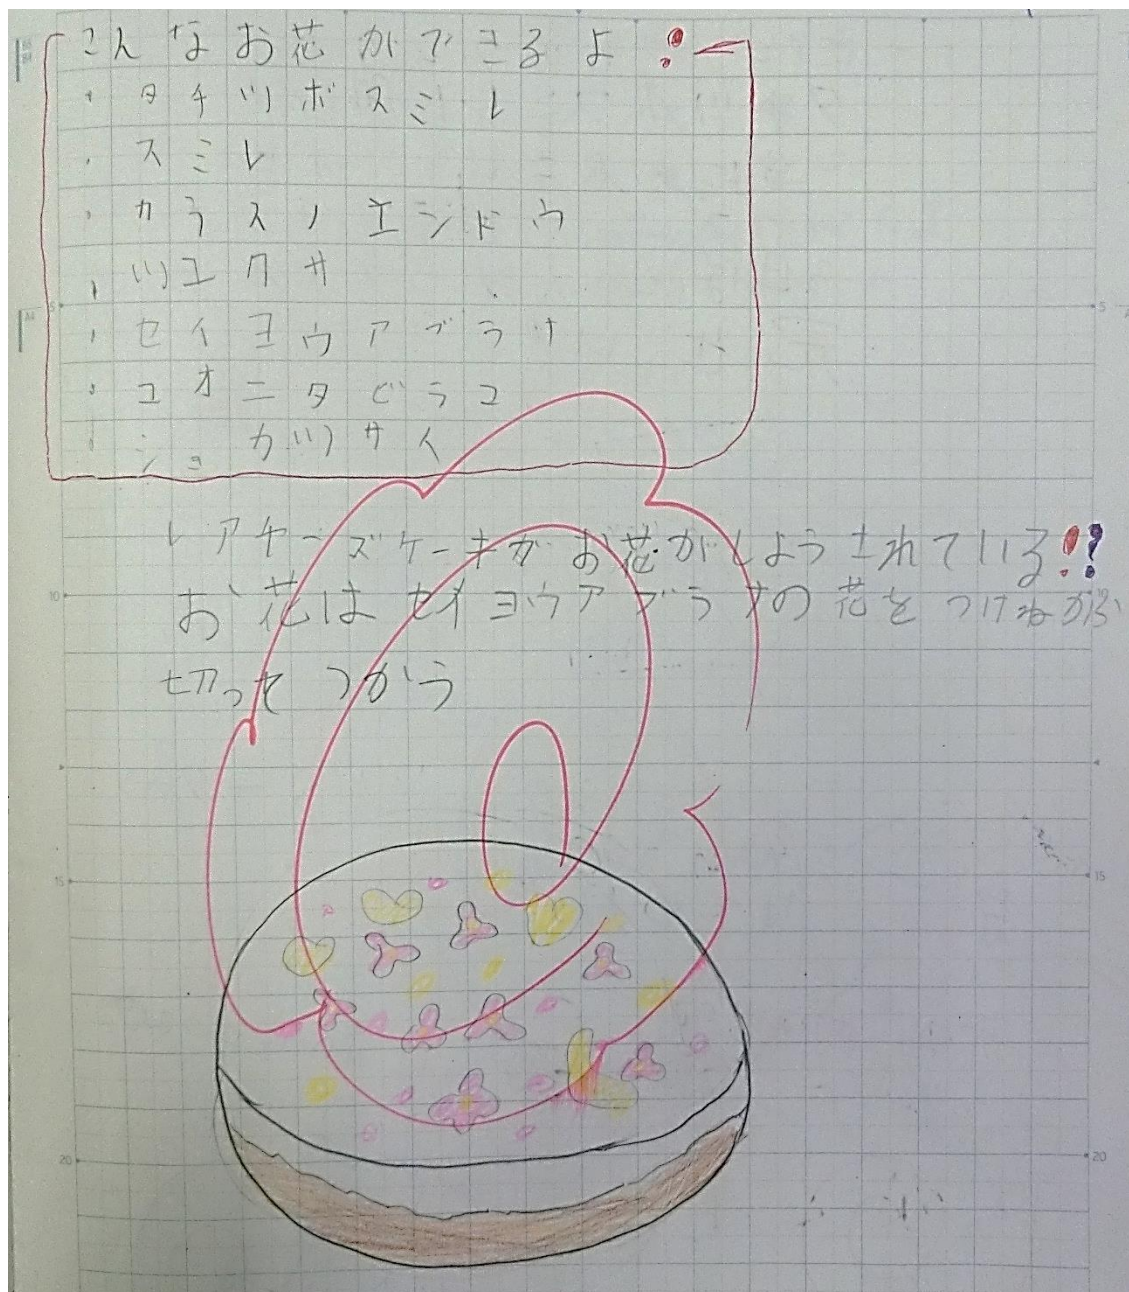 こんなお花ができるよ!
・タチツボスミレ
・スミレ
・カラスノエンドウ
・ツユクサ
・セイヨウアブラナ
・コオニタビラコ
・ショカツサイ
レアチーズケーキがお花がしようされている!?
お花はセイヨウアブラナの花をつけねから
切ってつかう
5
5
10
15
15
20
20